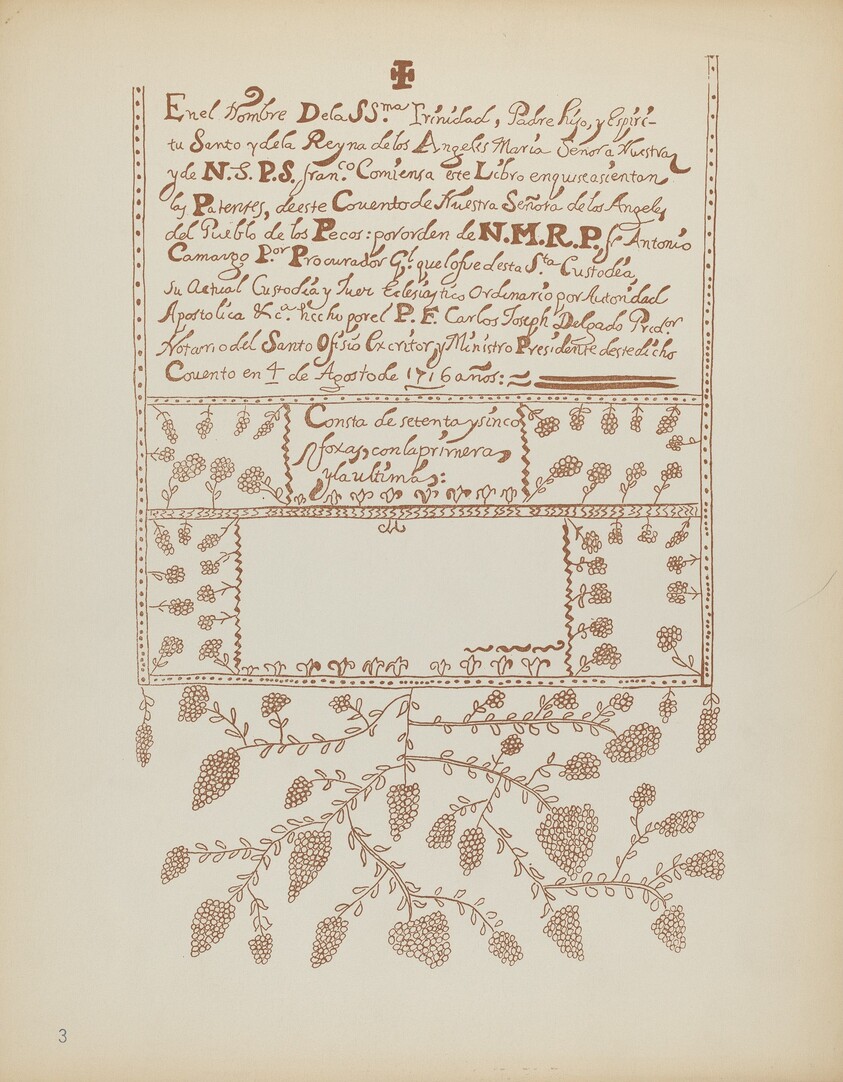 En el Nombre De la SS.ma Trinidad, Padre hijo, y Espiri-
tu Santo y de la Reyna de los Angeles Maria Señora Nuestra
y de N. S. P. S. Fran.co Comiensa este Libro en quiseasientan
las Patentes, de este Couento de Nuestra Señora de los Angeles
del Pueblo de los Pecos: por orden de N.M.R.P. fr Antonio
Camargo P.or Procurador G.l que lo fue desta S.ta Custodia
su Actual Custodia y Juez Eclesiastico Ordinario por Autoridad
Apostolica &c.a hecho por el P. F. Carlos Joseph Delgado Pred.or
Notario del Santo Ofisio Excritor, y Ministro Presidente deste dicho
Couento en 4 de Agosto de 1716 años:
Consta de setenta y sinco
foxas, con la primera,
y la ultima:
3